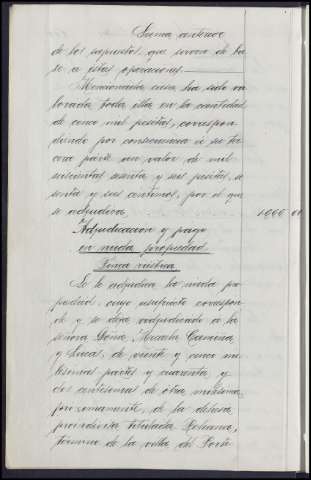 Suma anterior
de los supuestos, que sirven de ba
se a estas operaciones.
Mencionada casa ha sido va
lorada toda ella en la cantidad
de cinco mil pesetas, correspon
diendo por consecuencia a su ter
cera parte un valor de mil
seiscientas sesenta y seis pesetas, se
senta y seis centimos, por el que
se adjudica 1.666 66
Adjudicacion y pago
en nuda propiedad
Finca rústica
Se le adjudica la nuda pro
piedad, cuyo usufructo correspon
de y se deja adjudicado a la
señora Doña Micaela
y de veinte y cinco mi
lesimas partes y cuarenta y
dos centesimas de otra milesima,
proximamente, de la dehesa
proindivisa titulada
termino de la villa del